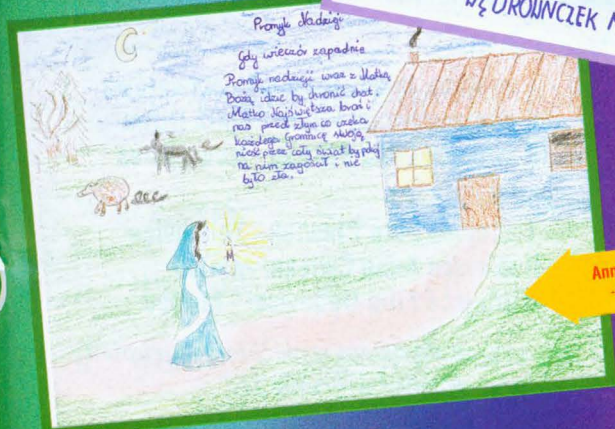 WĘDROWNICZEK
Promyk Nadziei
Gdy wieczór zapadnie
Promyk nadzieji wraz z Matką
Bożą idzie by chronić chat.
Matko Najświętsza broń i
nas przed złym co czeka
każdego. Gromnicę swoją
nieść przez cały świat by pokój
na nim zagościł i nie
było zła.
Ann